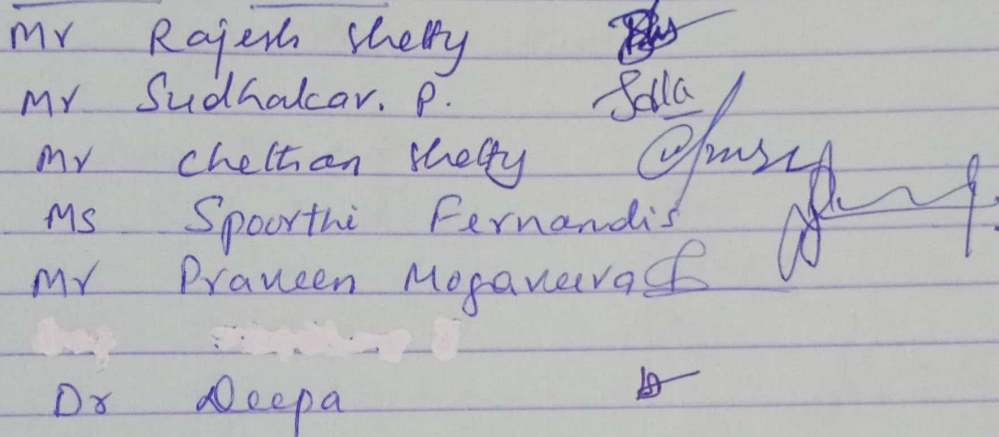 Mr Rajesh Shetty
Mr Sudhakar. P.
Mr Chethan Shetty
Ms Spoorthi Fernandis
Mr Praveen Mogaveera
Dr Deepa